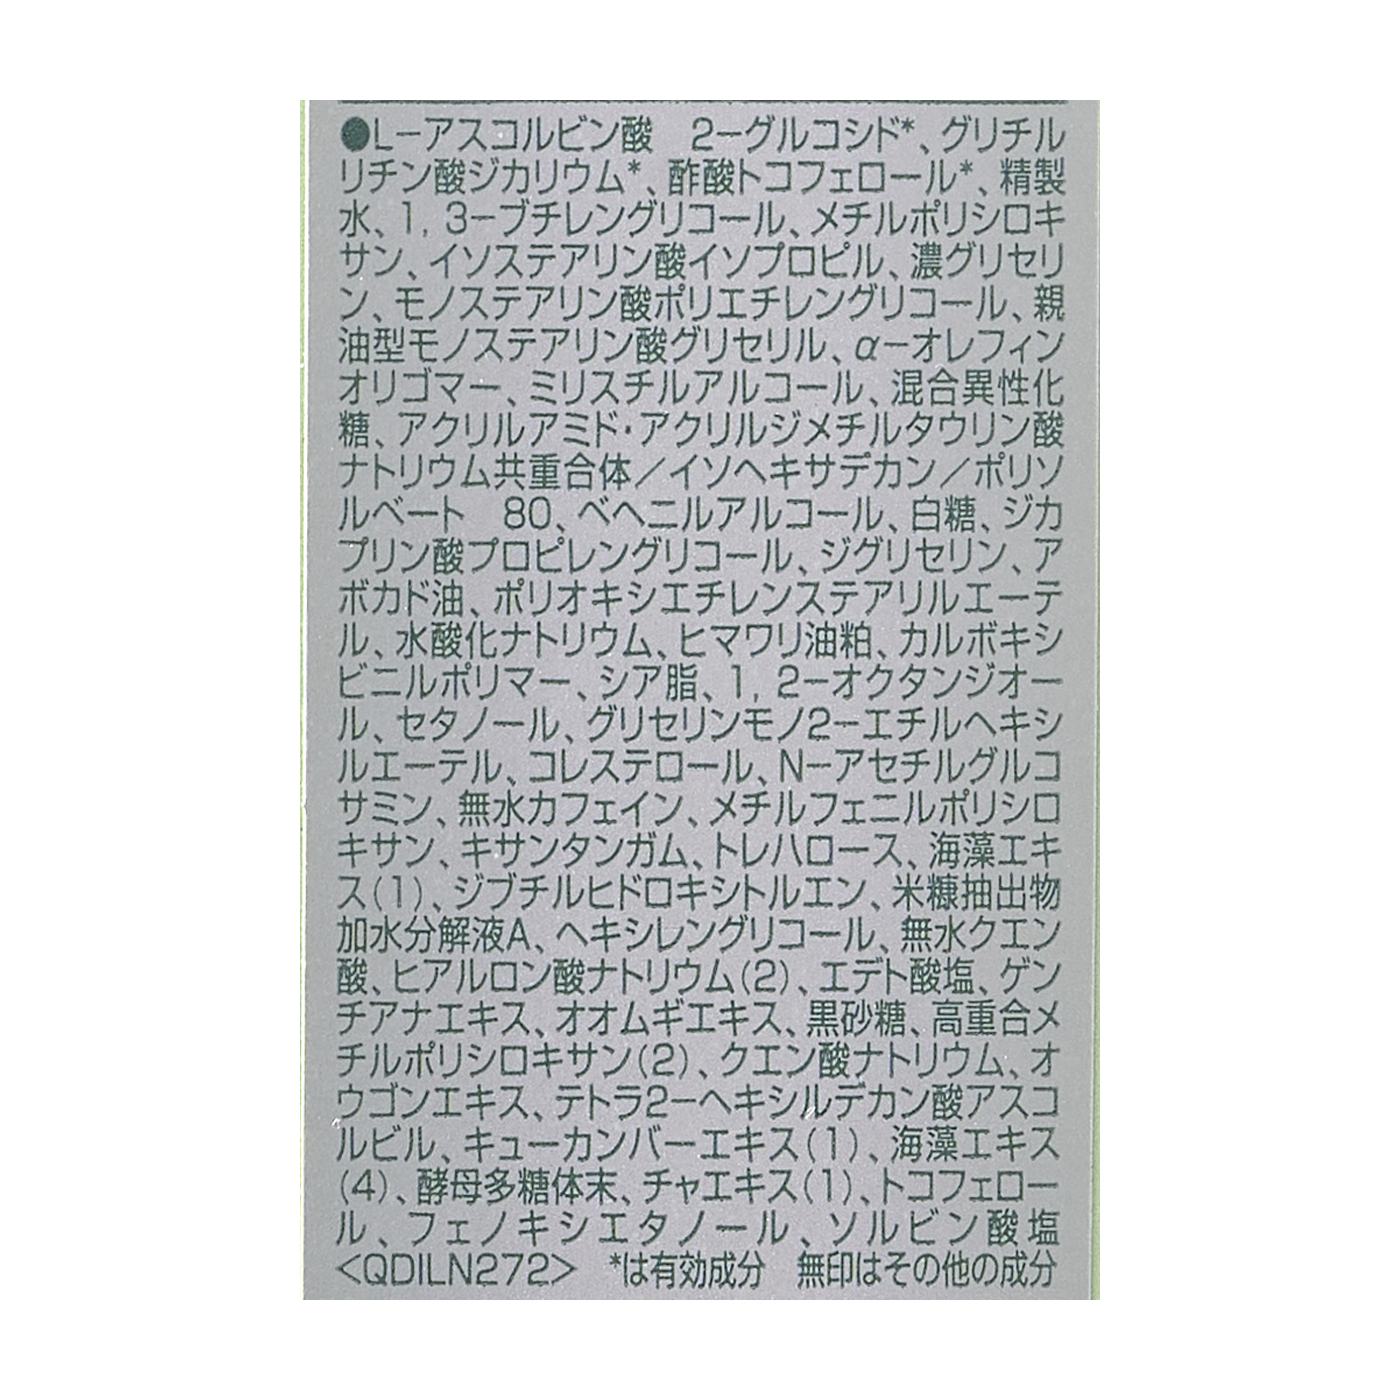 ●L-アスコルビン酸　2-グルコシド*、グリチル
リチン酸ジカリウム*、酢酸トコフェロール*、精製
水、1, 3-ブチレングリコール、メチルポリシロキ
サン、イソステアリン酸イソプロピル、濃グリセリ
ン、モノステアリン酸ポリエチレングリコール、親
油型モノステアリン酸グリセリル、α-オレフィン
オリゴマー、ミリスチルアルコール、混合異性化
糖、アクリルアミド・アクリルジメチルタウリン酸
ナトリウム共重合体／イソヘキサデカン／ポリソ
ルベート　80、ベヘニルアルコール、白糖、ジカ
プリン酸プロピレングリコール、ジグリセリン、ア
ボカド油、ポリオキシエチレンステアリルエーテ
ル、水酸化ナトリウム、ヒマワリ油粕、カルボキシ
ビニルポリマー、シア脂、1, 2-オクタンジオー
ル、セタノール、グリセリンモノ2-エチルヘキシ
ルエーテル、コレステロール、N-アセチルグルコ
サミン、無水カフェイン、メチルフェニルポリシロ
キサン、キサンタンガム、トレハロース、海藻エキ
ス(1)、ジブチルヒドロキシトルエン、米糠抽出物
加水分解液A、ヘキシレングリコール、無水クエン
酸、ヒアルロン酸ナトリウム(2)、エデト酸塩、ゲン
チアナエキス、オオムギエキス、黒砂糖、高重合メ
チルポリシロキサン(2)、クエン酸ナトリウム、オ
ウゴンエキス、テトラ2-ヘキシルデカン酸アスコ
ルビル、キューカンバーエキス(1)、海藻エキス
(4)、酵母多糖体末、チャエキス(1)、トコフェロー
ル、フェノキシエタノール、ソルビン酸塩
<QDILN272>　*は有効成分　無印はその他の成分